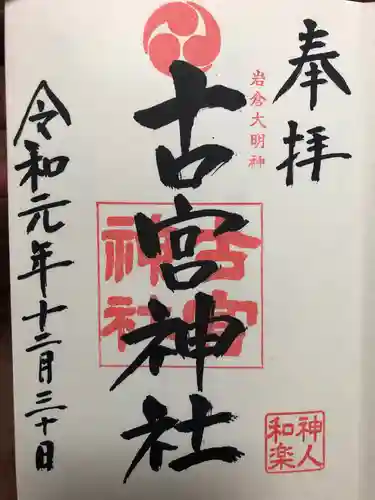 奉拝
岩倉大明神
古宮神社
古宮神社
令和元年十二月三十日
神人和楽